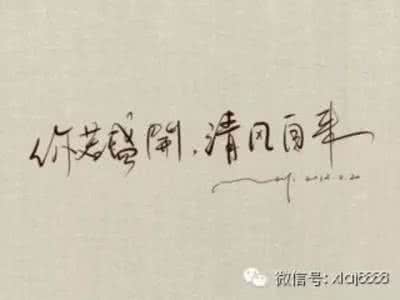 你若盛開，清风自来
微信号: xlaj8888